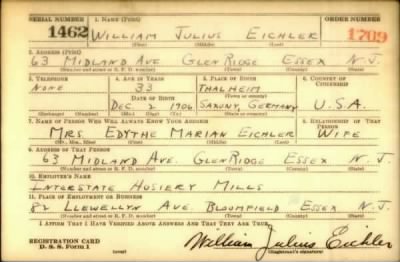 SERIAL NUMBER 1. NAME (Print) ORDER NUMBER
1462 WILLIAM JULIUS EICHLER 1709
(First) (Middle) (Last)
2. ADDRESS (Print)
63 MIDLAND AVE GLEN RIDGE ESSEX N.J.
(Number and street or R. F. D. number) (Town) (County) (State)
3. TELEPHONE 4. AGE IN YEARS 5. PLACE OF BIRTH 6. COUNTRY OF CITIZENSHIP
NONE 33 THALHEIM
DATE OF BIRTH
DEC. 2 1906 SAXONY, GERMANY U.S.A.
7. NAME OF PERSON WHO WILL ALWAYS KNOW YOUR ADDRESS 8. RELATIONSHIP OF THAT PERSON
MRS. EDYTHE MARIAN EICHLER WIFE
(Mr., Mrs., Miss) (First) (Middle) (Last)
9. ADDRESS OF THAT PERSON
63 MIDLAND AVE. GLEN RIDGE ESSEX N.J.
(Number and street or R. F. D. number) (Town) (County) (State)
10. EMPLOYER'S NAME
INTERSTATE HOSIERY MILLS
11. PLACE OF EMPLOYMENT OR BUSINESS
82 LLEWELLYN AVE. BLOOMFIELD ESSEX N.J.
(Number and street or R. F. D. number) (Town) (County) (State)
I AFFIRM THAT I HAVE VERIFIED ABOVE ANSWERS AND THAT THEY ARE TRUE.
REGISTRATION CARD
D. S. S. Form 1 (over) William Julius Eichler
(Registrant's signature)